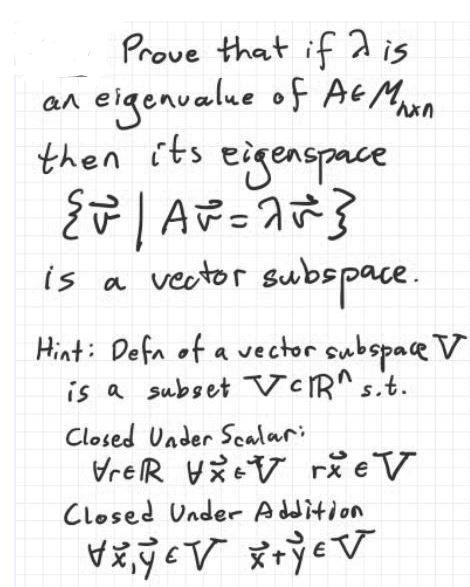 Prove that if λ is
an eigenvalue of A∈Mₙₓₙ
then its eigenspace
{v⃗ | Av⃗ = λv⃗}
is a vector subspace.
Hint: Defn of a vector subspace V
is a subset V⊂ℝⁿ s.t.
Closed Under Scalar:
∀r∈ℝ ∀x⃗∈V rx⃗∈V
Closed Under Addition
∀x⃗,y⃗∈V x⃗+y⃗∈V